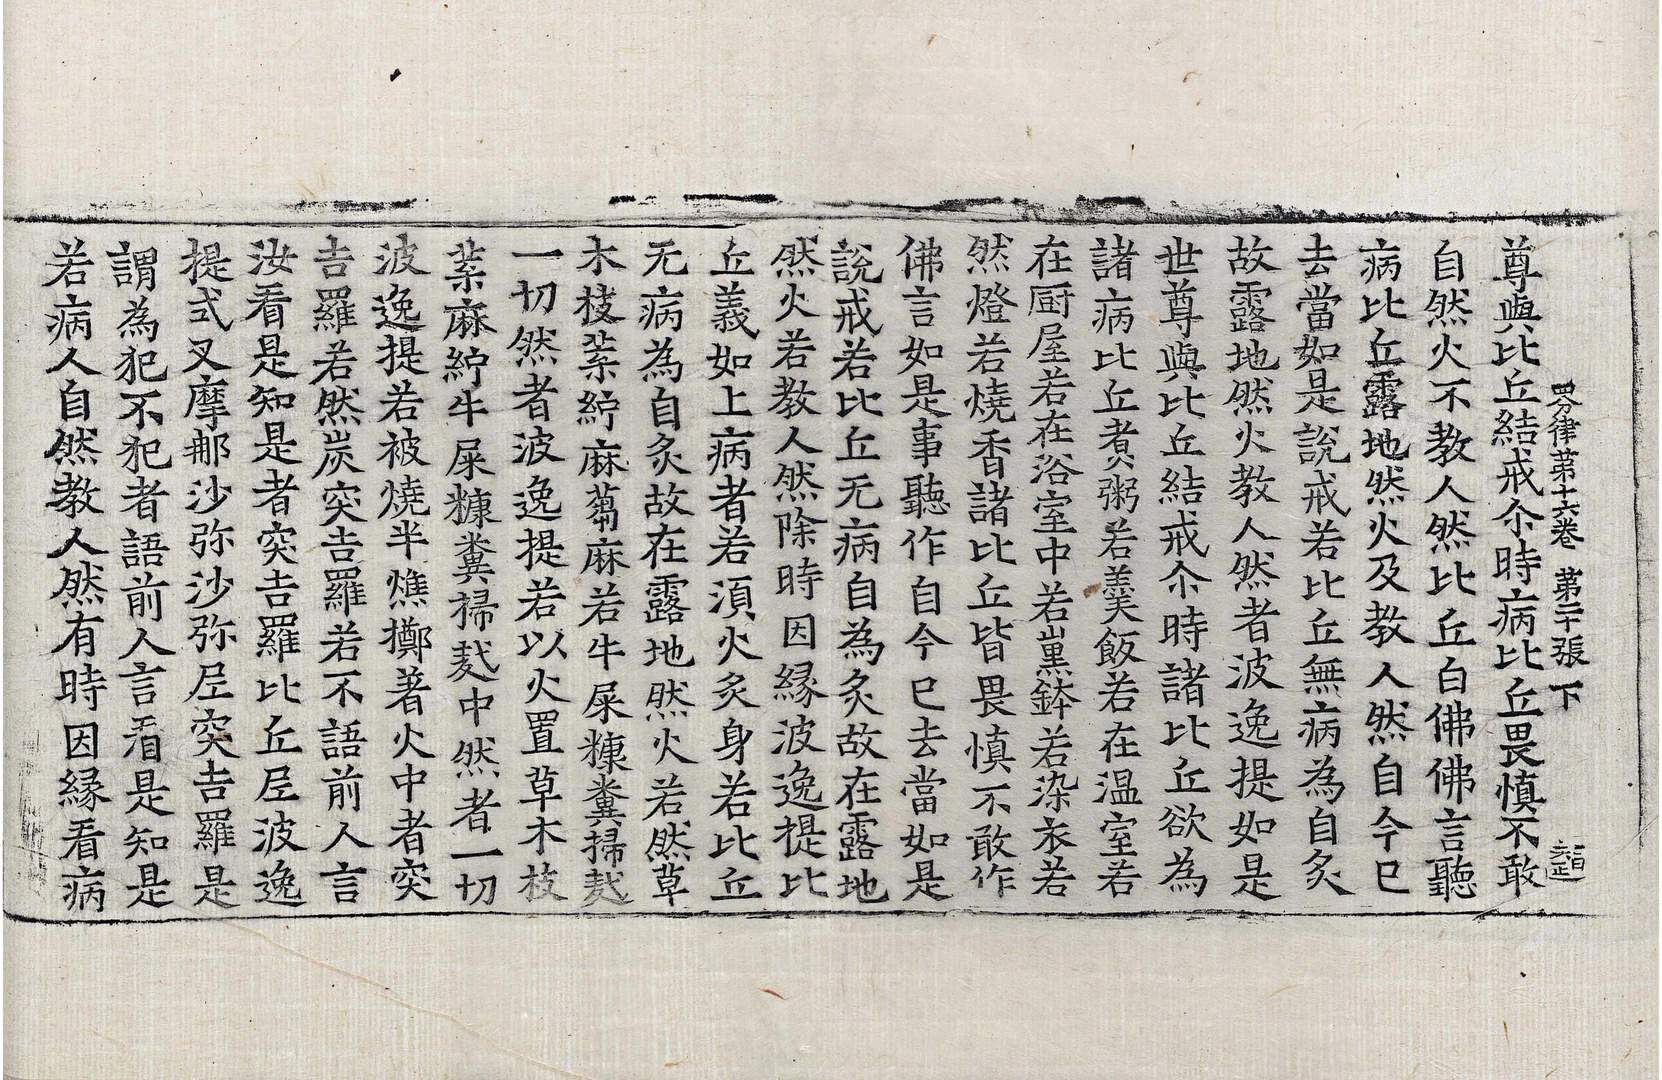 四分律第十六卷 第二十張 下
尊與比丘結戒尒時病比丘畏慎不敢
自然火不教人然比丘白佛佛言聽
病比丘露地然火及教人然自今已
去當如是說戒若比丘無病為自炙
故露地然火教人然者波逸提如是
世尊與比丘結戒尒時諸比丘欲為
諸病比丘煮粥若羹飯若在温室若
在厨屋若在浴室中若熏鉢若染衣若
然燈若燒香諸比丘皆畏慎不敢作
佛言如是事聽作自今已去當如是
說戒若比丘无病自為炙故在露地
然火若教人然除時因緣波逸提比
丘義如上病者若湏火炙身若比丘
无病為自炙故在露地然火若然草
木枝葉紵麻蒭麻若牛屎糠糞掃麩
一切然者波逸提若以火置草木枝
葉麻紵牛屎糠糞掃麩中然者一切
波逸提若被燒半燋擲著火中者突
吉羅若然炭突吉羅若不語前人言
汝看是知是者突吉羅比丘尼波逸
提式叉摩那沙弥沙弥尼突吉羅是
謂為犯不犯者語前人言看是知是
若病人自然教人然有時因緣看病